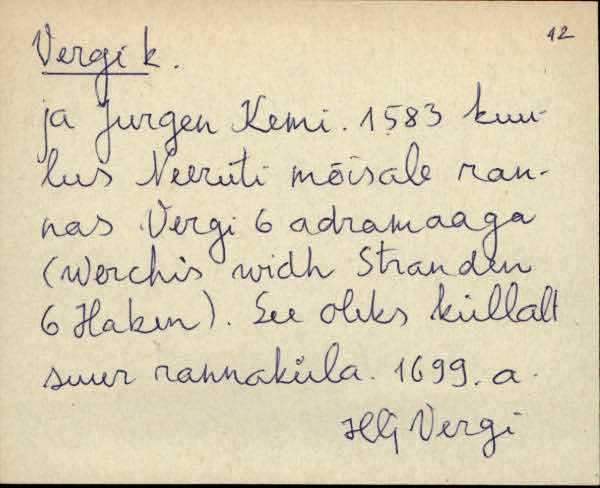 12
Vergi k.
ja Jurgen Kemi. 1583 kuu-
lus Neeruti mõisale ran-
nas Vergi 6 adramaaga
(Werchis widh Stranden
6 Haken). See oleks küllalt
suur rannaküla. 1699. a.
HG Vergi